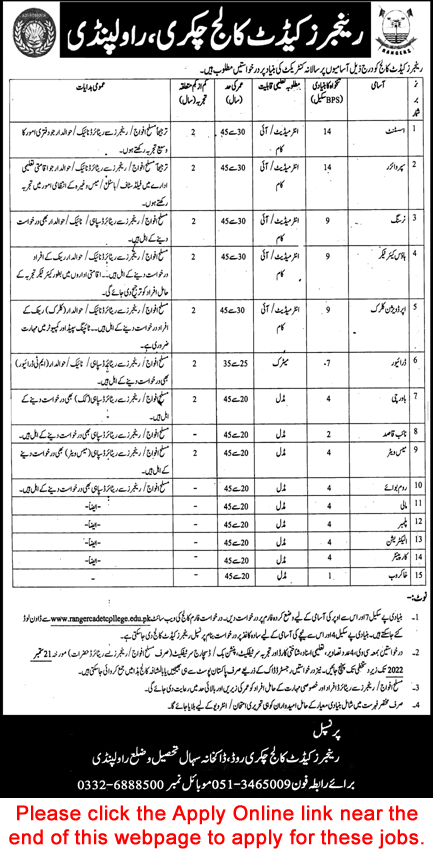 RANGERS
رینجرز کیڈٹ کالج چکری، راولپنڈی
رینجرز کیڈٹ کالج کو درج ذیل آسامیوں پر سالانہ کنٹریکٹ کی بنیاد پر درخواستیں مطلوب ہیں۔
نمبر شمار آسامی تنخواہ کا بنیادی (BPS سکیل) مطلوبہ تعلیمی قابلیت عمر کی حد (سال) کم از کم متعلقہ تجربہ (سال) عمومی ہدایات
1 اسسٹنٹ 14 انٹرمیڈیٹ/ آئی کام 30 سے 45 2 ترجیحاً مسلح افواج/ رینجرز سے ریٹائرڈ نائیک/ حوالدار جو دفتری امور کا وسیع تجربہ رکھتے ہوں۔
2 سپروائزر 14 انٹرمیڈیٹ/ آئی کام 30 سے 45 2 ترجیحاً مسلح افواج/ رینجرز سے ریٹائرڈ نائیک/ حوالدار جو اقامتی تعلیمی ادارے میں فیلڈ سٹاف/ ہاسٹل/ میس وغیرہ کے انتظامی امور میں تجربہ رکھتے ہوں۔
3 نرسنگ 9 انٹرمیڈیٹ/ آئی کام 30 سے 45 2 مسلح افواج/ رینجرز سے ریٹائرڈ سپاہی/ نائیک/ حوالدار بھی درخواست دینے کے اہل ہیں۔
4 ہاؤس کیئر ٹیکر 9 انٹرمیڈیٹ/ آئی کام 30 سے 45 2 مسلح افواج/ رینجرز سے ریٹائرڈ نائیک/ حوالدار رینک کے افراد درخواست دینے کے اہل ہیں۔ اقامتی اداروں میں بطور کیئر ٹیکر تجربہ کے حامل افراد کو ترجیح دی جائے گی۔
5 اپر ڈویژن کلرک 9 انٹرمیڈیٹ/ آئی کام 30 سے 45 2 مسلح افواج/ رینجرز سے ریٹائرڈ نائیک/ حوالدار (کلرک) رینک کے افراد درخواست دینے کے اہل ہیں۔ ٹائپنگ سپیڈ اور کمپیوٹر میں مہارت ضروری ہے۔
6 ڈرائیور 7- میٹرک 25 سے 35 2 مسلح افواج/ رینجرز سے ریٹائرڈ سپاہی/ نائیک/ حوالدار (ایم ٹی ڈرائیور) بھی درخواست دینے کے اہل ہیں۔
7 باورچی 4 مڈل 20 سے 45 2 مسلح افواج/ رینجرز سے ریٹائرڈ سپاہی (کک) بھی درخواست دینے کے اہل ہیں۔
8 نائب قاصد 2 مڈل 20 سے 45 - مسلح افواج/ رینجرز سے ریٹائرڈ سپاہی بھی درخواست دینے کے اہل ہیں۔
9 میس ویٹر 4 مڈل 20 سے 45 2 مسلح افواج/ رینجرز سے ریٹائرڈ سپاہی (میس ویٹر) بھی درخواست دینے کے اہل ہیں۔
10 روم بوائے 4 مڈل 20 سے 45 - مسلح افواج/ رینجرز سے ریٹائرڈ سپاہی بھی درخواست دینے کے اہل ہیں۔
11 مالی 4 مڈل 20 سے 45 -ایضاً-
12 پلمبر 4 مڈل 20 سے 45 -ایضاً-
13 الیکٹریشن 4 مڈل 20 سے 45 -ایضاً-
14 کارپینٹر 4 مڈل 20 سے 45 -ایضاً-
15 خاکروب 1 مڈل 20 سے 45 - -ایضاً-
نوٹ:-
1۔ بنیادی پے سکیل 7 اور اس سے اوپر کی آسامی کے لیے وضع کردہ فارم پر درخواست دیں۔ درخواست فارم کالج کی ویب سائٹ www.rangercadetcollege.edu.pk سے ڈاؤن لوڈ
کئے جا سکتے ہیں۔ بنیادی پے سکیل 4 اور اس سے نیچے کی آسامی کے لیے سادہ کاغذ پر درخواست بنام پرنسپل رینجرز کیڈٹ کالج دی جا سکتی ہے۔
2۔ درخواستیں بمعہ سی وی، 4 عدد تصاویر، تعلیمی اسناد، شناختی کارڈ اور تجربہ سرٹیفکیٹ، پنشن بک/ ڈسچارج سرٹیفکیٹ (صرف مسلح افواج/ رینجرز سے ریٹائرڈ حضرات) مورخہ 21 ستمبر
2022 تک زیر دستخطی تک پہنچ جائیں۔ نیز درخواستیں رجسٹرڈ ڈاک کے ذریعے صرف پاکستان پوسٹ سے ہی بھیجیں یا بالمشافہ کالج ہذا میں جمع کروائی جا سکتی ہیں۔
3۔ مسلح افواج/ رینجرز سے ریٹائرڈ افراد اور خصوصی مہارت کے حامل افراد کو عمر کی زیریں اور بالائی حد میں رعایت دی جائے گی۔
4۔ صرف مختصر فہرست میں شامل بنیادی معیار کے حامل امیدواران کو ہی تحریری امتحان/ انٹرویو کے لیے بلایا جائے گا۔
پرنسپل
رینجرز کیڈٹ کالج چکری روڈ، ڈاکخانہ سہال تحصیل و ضلع راولپنڈی
برائے رابطہ فون 051-3465009 موبائل نمبر 0332-6888500
Please click the Apply Online link near the
end of this webpage to apply for these jobs.